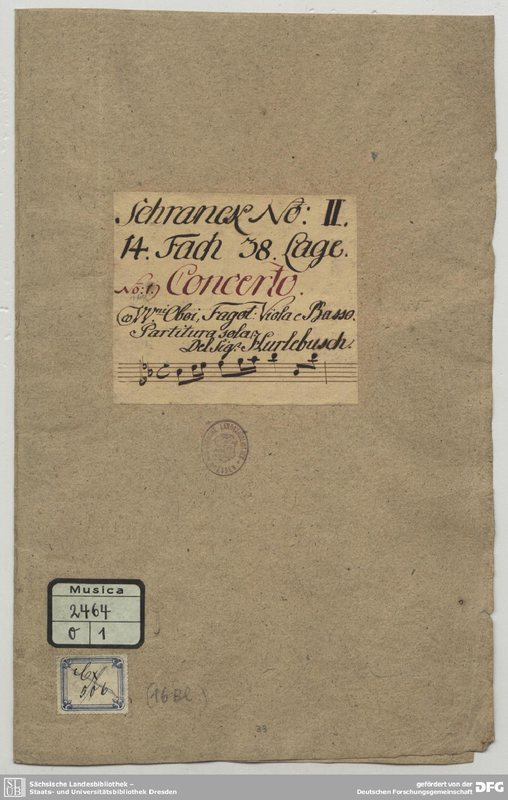 Schranck No: II.
14. Fach 38. Lage.
No: 1.) Concerto.
co VV.ni Oboi, Fagot: Viola e Basso.
Partitura sola.
Del Sig.r Hurlebusch.
Musica
2464
O 1
Cx
506
(16 Bl.)
33
SLUB
Sächsische Landesbibliothek –
Staats- und Universitätsbibliothek Dresden
gefördert von der
Deutschen Forschungsgemeinschaft
DFG